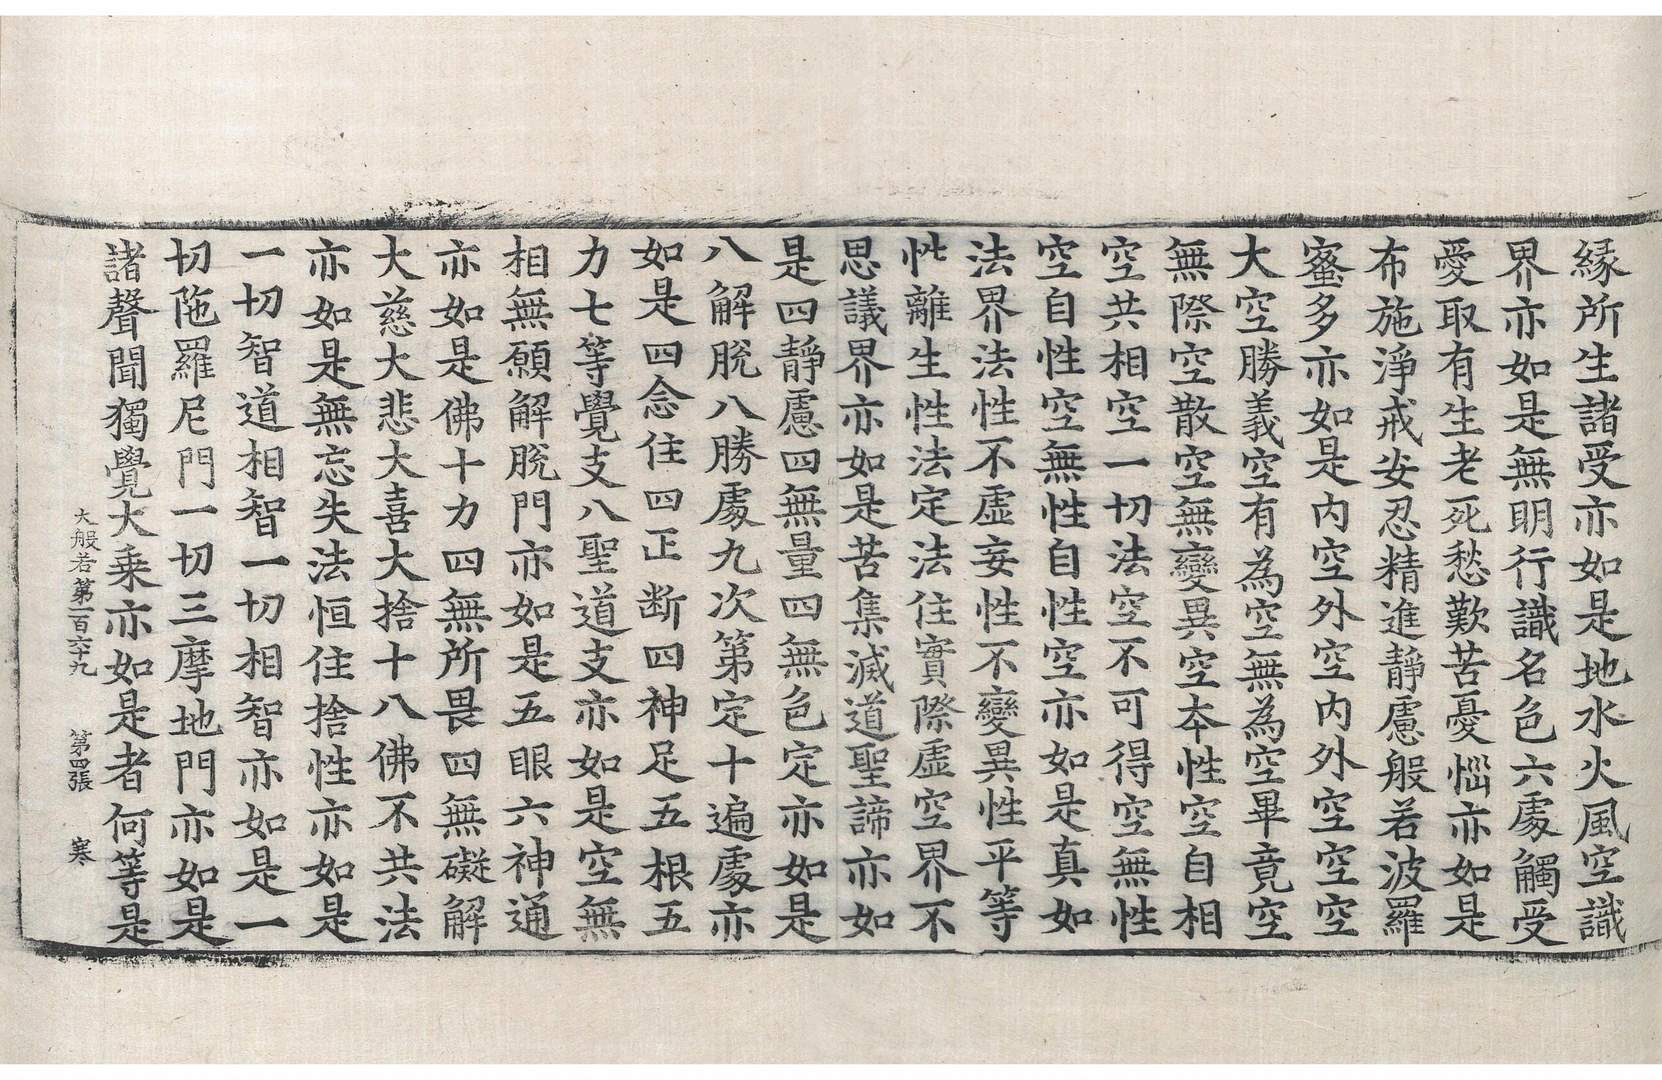 緣所生諸受亦如是地水火風空識
界亦如是無明行識名色六處觸受
愛取有生老死愁歎苦憂惱亦如是
布施淨戒安忍精進靜慮般若波羅
蜜多亦如是內空外空內外空空空
大空勝義空有為空無為空畢竟空
無際空散空無變異空本性空自相
空共相空一切法空不可得空無性
空自性空無性自性空亦如是真如
法界法性不虛妄性不變異性平等
性離生性法定法住實際虛空界不
思議界亦如是苦集滅道聖諦亦如
是四靜慮四無量四無色定亦如是
八解脫八勝處九次第定十遍處亦
如是四念住四正斷四神足五根五
力七等覺支八聖道支亦如是空無
相無願解脫門亦如是五眼六神通
亦如是佛十力四無所畏四無礙解
大慈大悲大喜大捨十八佛不共法
亦如是無忘失法恒住捨性亦如是
一切智道相智一切相智亦如是一
切陁羅尼門一切三摩地門亦如是
諸聲聞獨覺大乘亦如是者何等是
大般若第一百六十九 第四張 寒